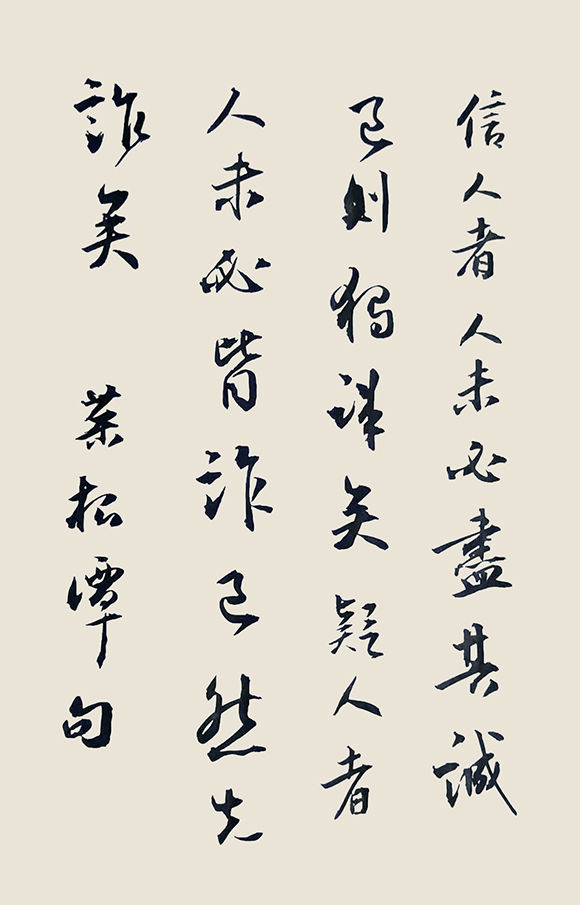 信人者人未必盡其誠
己則獨誠矣疑人者
人未必皆詐己然先
詐矣 菜根譚句